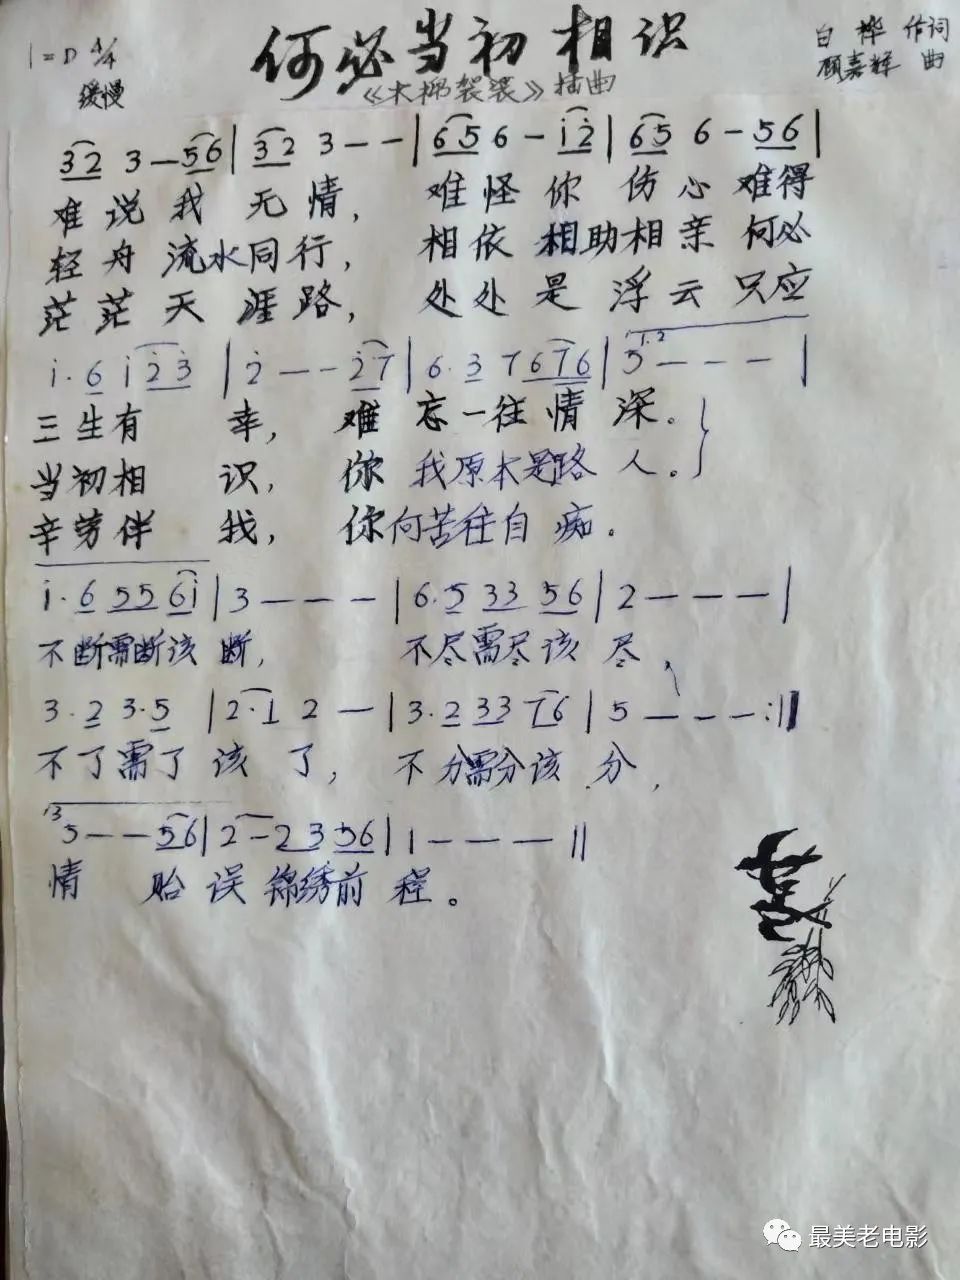 何必当初相识
1=D 4/4
缓慢
《木棉袈裟》插曲
白桦 作词
顾嘉辉 曲
32 3—56|32 3——|656—i2|65 6—56|
难说我无情，难怪你伤心难得
轻舟流水同行，相依相助相亲何必
茫茫天涯路，处处是浮云只应
i·6 i23|2——27|6·3 7676|5———|
1.2
三生有幸，难忘一往情深。
当初相识，你我原本是路人。
辛劳伴我，你何苦往自痴。
i·6 55 6i|3———|6·5 33 56|2———|
不断需断该断，不尽需尽该尽，
3·2 3·5|2·1 2—|3·2 33 76|5———:||
不了需了该了，不分需分该分，
3
5——56|2—2 3 56|1———||
情 贻误锦绣前程。
最美老电影